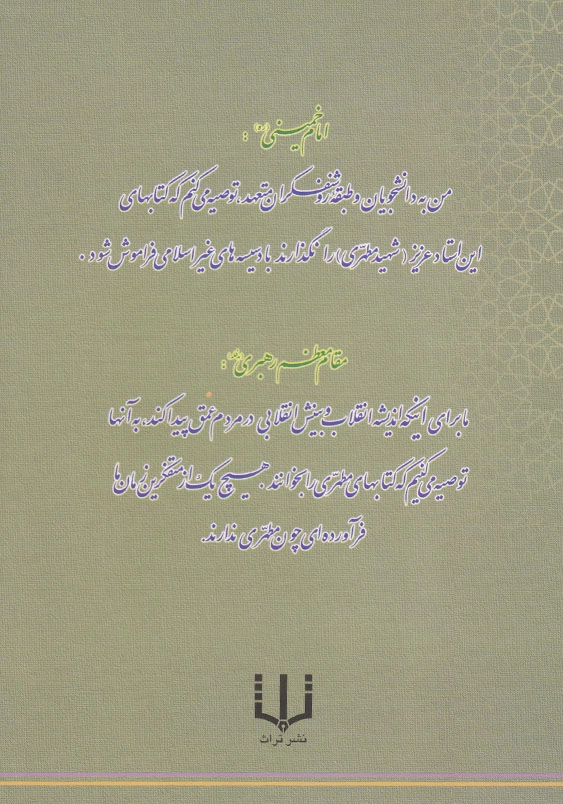 امام خمینی (ره) :
من به دانشجویان و طبقهٔ روشنفکران متعهد، توصیه می‌کنم که کتابهای
این استاد عزیز (شهید مطهّری) را نگذارند با دسیسه‌های غیر اسلامی فراموش شود .
مقام معظم رهبری :
ما برای اینکه اندیشه انقلاب و بینش انقلابی در مردم عمق پیدا کند، به آنها
توصیه می‌کنیم که کتابهای مطهّری را بخوانند. هیچ یک از متفکّرین زمان ما
فرآورده‌ای چون مطهّری ندارند.
نشر تراث